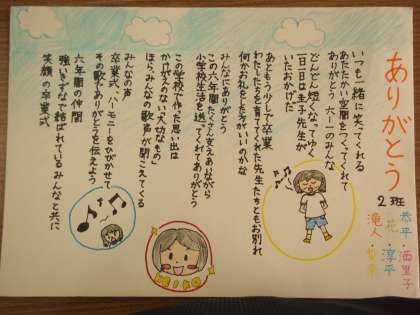 ありがとう
2班
恭平・茜里子
花・淳平
滝人・
いつも一緒に笑ってくれる
あたたかい空間をつくってくれて
ありがとう 六ー一のみんな
どんどん短くなってゆく
一日一日は圭子先生が
いたおかげだ
あともう少しで卒業
わたしたちを育ててくれた先生たちともお別れ
何かお礼をした方がいいのかな
みんなにありがとう
この六年間たくさん支えありながら
小学校生活を送ってくれてありがとう
この学校で作った思い出は
かけがえのない大切なもの
ほら、みんなの歌声が聞こえてくる
みんなの声
卒業式、ハーモニーをひびかせて
その歌でありがとうを伝えよう
六年間の仲間
強いきずなで結ばれているみんなと共に
笑顔の卒業式
KEIKO